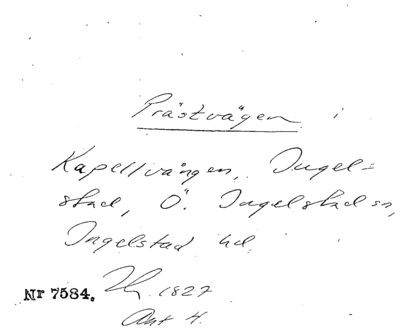 Prästvägen i
Kapellvången, Ingel=
stad, Ö. Ingelstad sn,
Ingelstad hd
Nr 7584. 1827
Akt 4.